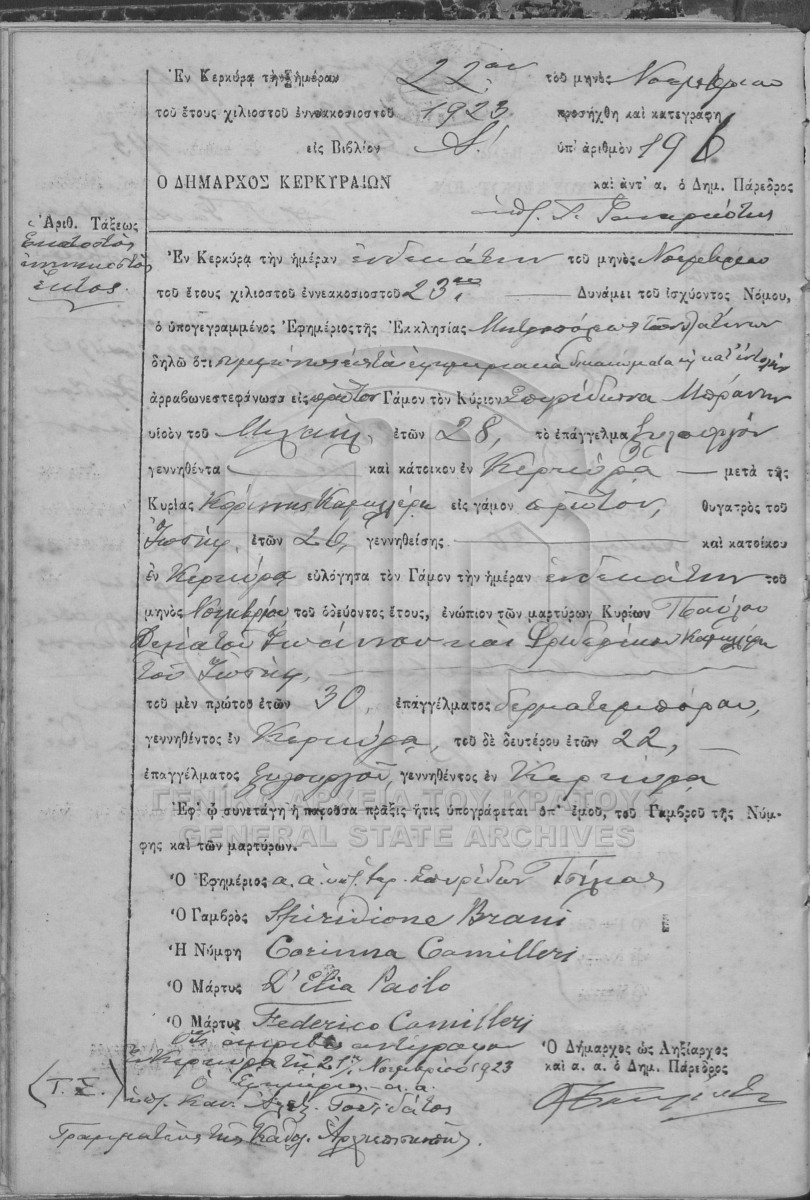 Ἐν Κερκύρᾳ τὴν ἡμέραν 22αν τοῦ μηνὸς Νοεμβρίου
τοῦ ἔτους χιλιοστοῦ ἐννεακοσιοστοῦ 1923 προσήχθη καὶ κατεγράφη
εἰς Βιβλίον Α' ὑπ' ἀριθμὸν 196
Ο ΔΗΜΑΡΧΟΣ ΚΕΡΚΥΡΑΙΩΝ καὶ ἀντ' α. ὁ Δημ. Πάρεδρος
ὑπογ. Γ.
Ἀριθ. Τάξεως
Ἑκατοστὸς
ἐννενηκοστὸς
ἕκτος.
Ἐν Κερκύρᾳ τὴν ἡμέραν ἑνδεκάτην τοῦ μηνὸς Νοεμβρίου
τοῦ ἔτους χιλιοστοῦ ἐννεακοσιοστοῦ 23ου Δυνάμει τοῦ ἰσχύοντος Νόμου,
ὁ ὑπογεγραμμένος Ἐφημέριος τῆς Ἐκκλησίας Μητροπόλεως τῶν Λατίνων
δηλῶ ὅτι τὰ ἐφημεριακὰ δικαιώματα κατ' ἐντολὴν
ἀρραβωνεστεφάνωσα εἰς πρῶτον Γάμον τὸν Κύριον Σπυρίδωνα Μπράνην
υἱὸν τοῦ Μιχαὴλ, ἐτῶν 28, τὸ ἐπάγγελμα ξυλουργὸν
γεννηθέντα καὶ κάτοικον ἐν Κερκύρᾳ μετὰ τῆς
Κυρίας Κορίννης Καμιλλέρη εἰς γάμον πρῶτον, θυγατρὸς τοῦ
Ἰωσὴφ, ἐτῶν 26, γεννηθείσης καὶ κατοίκου
ἐν Κερκύρᾳ εὐλόγησα τὸν Γάμον τὴν ἡμέραν ἑνδεκάτην τοῦ
μηνὸς Νοεμβρίου τοῦ ὁδεύοντος ἔτους, ἐνώπιον τῶν μαρτύρων Κυρίων Παύλου
Δελία τοῦ Ἰωάννου καὶ Φρειδερίκου Καμιλλέρη
τοῦ Ἰωσὴφ,
τοῦ μὲν πρώτου ἐτῶν 30, ἐπαγγέλματος δερματεμπόρου,
γεννηθέντος ἐν Κερκύρᾳ, τοῦ δὲ δευτέρου ἐτῶν 22,
ἐπαγγέλματος ξυλουργοῦ, γεννηθέντος ἐν Κερκύρᾳ
ΓΕΝΙΚΑ ΑΡΧΕΙΑ ΤΟΥ ΚΡΑΤΟΥΣ
Ἐφ' ᾧ συνετάγη ἡ παροῦσα πρᾶξις ἥτις ὑπογράφεται ὑπ' ἐμοῦ, τοῦ Γαμβροῦ τῆς Νύμ-
GENERAL STATE ARCHIVES
φης καὶ τῶν μαρτύρων.
Ὁ Ἐφημέριος α. α. ὑπογ. ἱερ. Σπυρίδων
Ὁ Γαμβρὸς Spiridione Brani
Ἡ Νύμφη Corinna Camilleri
Ὁ Μάρτυς D'Elia Paolo
Ὁ Μάρτυς Federico Camilleri
ἀκριβὲς ἀντίγραφον
Ἐν Κερκύρᾳ τῇ 21ῃ Νοεμβρίου 1923
Ὁ Δήμαρχος ὡς Ληξίαρχος
καὶ α. α. ὁ Δημ. Πάρεδρος
(Τ.Σ.)
Ὁ Ἐφημέριος α.α.
ὑπογ. Καν.
Γραμματεὺς τῆς Καθολ. Ἀρχιεπισκοπῆς.